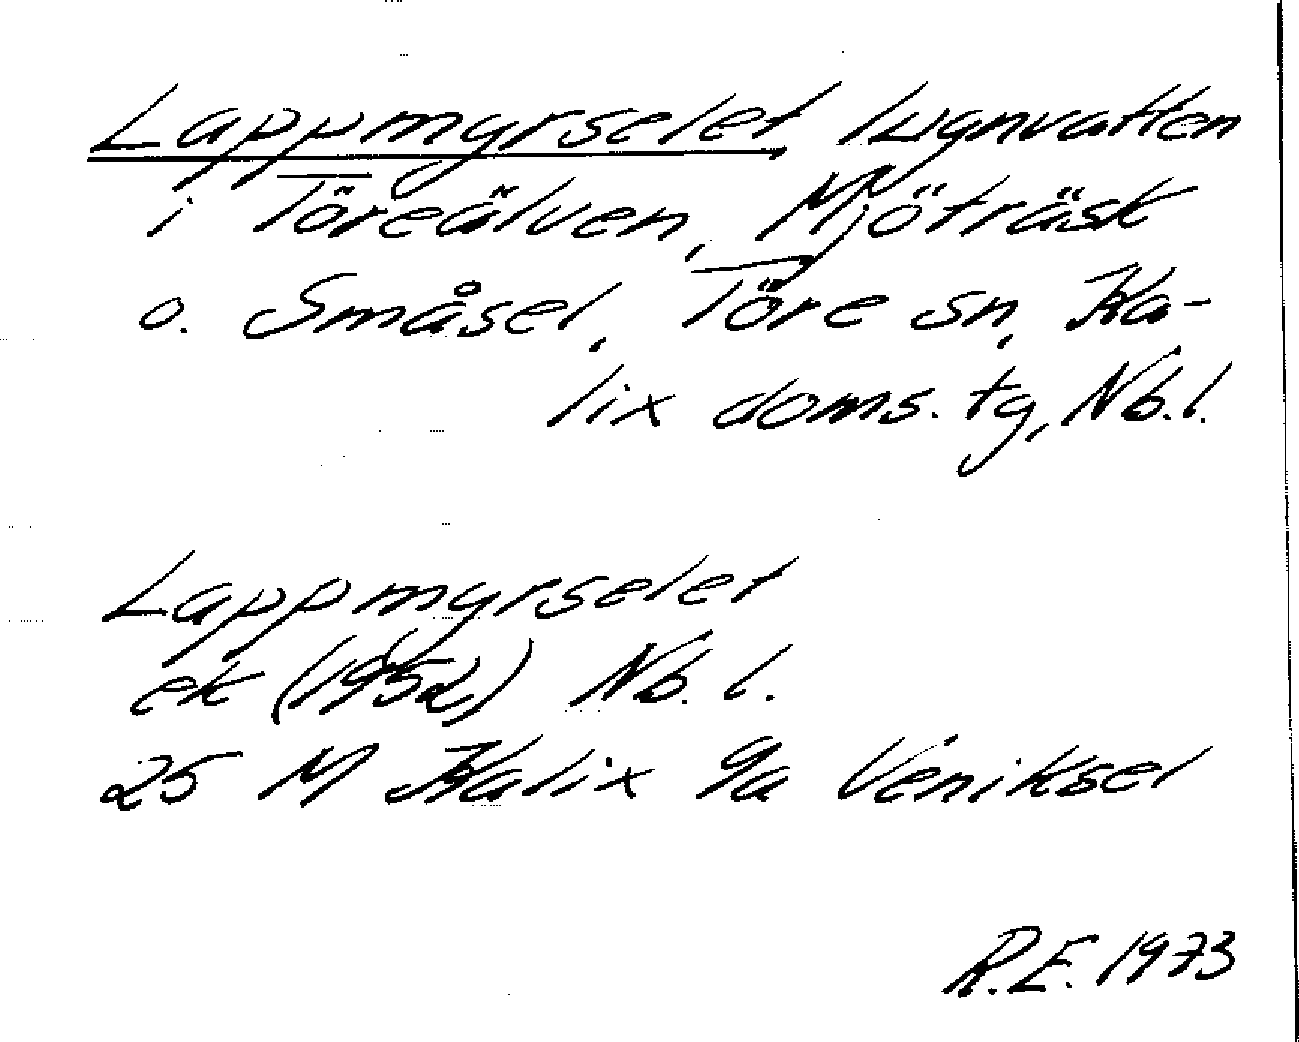 Lappmyrselet, lugnvatten
i Töreälven, Mjöträsk
o. Småsel, Töre sn, Ka-
lix doms. tg, Nb. l.
Lappmyrselet
ek (1952) Nb. l.
25 M Kalix 9a Veniksel
R.E. 1973